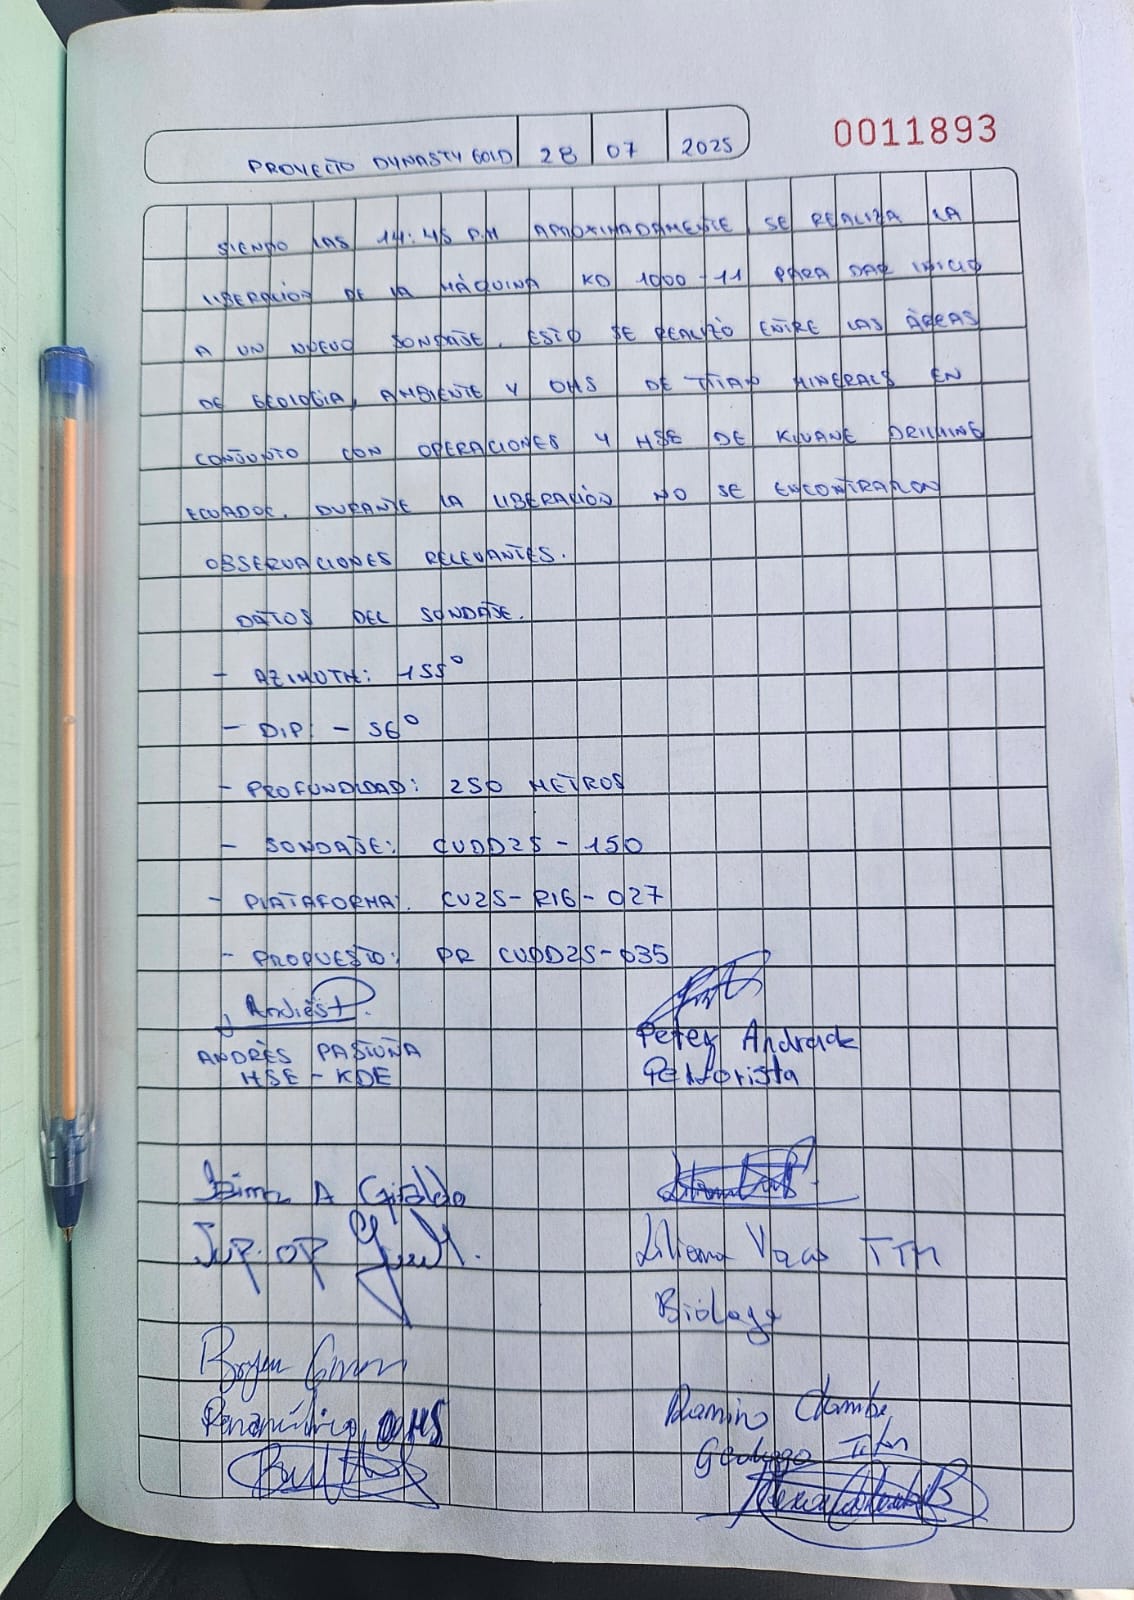 0011893
PROYECTO DYNASTY GOLD 28 07 2025
SIENDO LAS 14:45 P.M APROXIMADAMENTE SE REALIZA LA
LIBERACIÓN DE LA MÁQUINA KD 1000-11 PARA DAR INICIO
A UN NUEVO SONDAJE. ESTO SE REALIZÓ ENTRE LAS ÁREAS
DE GEOLOGIA, AMBIENTE Y OHS DE TITAN MINERALS EN
CONJUNTO CON OPERACIONES Y HSE DE KLUANE DRILLING
ECUADOR. DURANTE LA LIBERACIÓN NO SE ENCONTRARON
OBSERVACIONES RELEVANTES.
DATOS DEL SONDAJE.
- AZIMUTH: 155°
- DIP: - 56°
- PROFUNDIDAD: 250 METROS
- SONDAJE: CUDD25-150
- PLATAFORMA: CV25-R16-027
- PROPUESTO: PR CUDD25-035
Andrés P.
ANDRÈS PASTUÑA
HSE - KDE
Peter Andrade
Perforista
A Giraldo
Sup. OP
Liliana Vacas TTM
Bióloga
Paramédico OHS
Ramiro
Geólogo